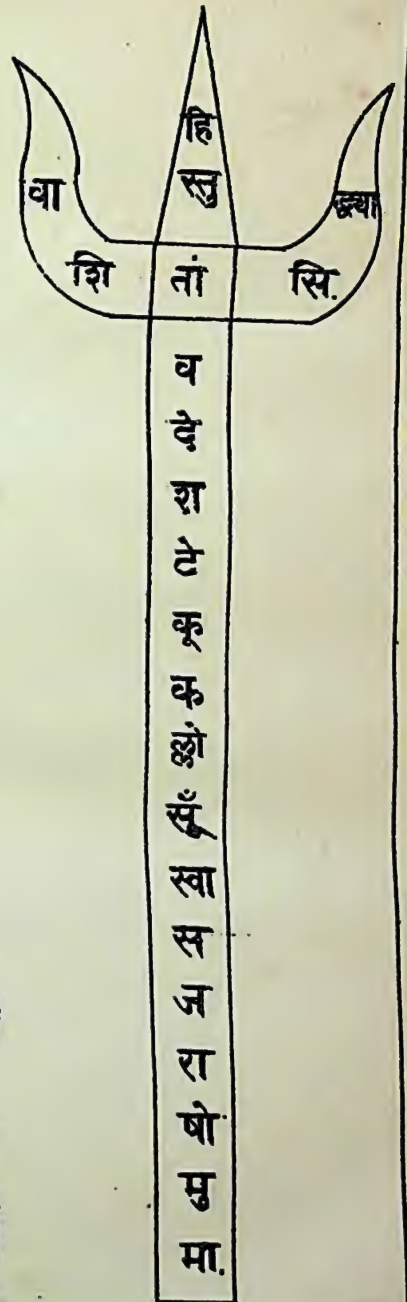 हि
वा स्तु द्ध्या
शि तां सि.
व
दे
श
टे
कू
क
ल्लो
सूँ
स्वा
स
ज
रा
षो
मु
मा.